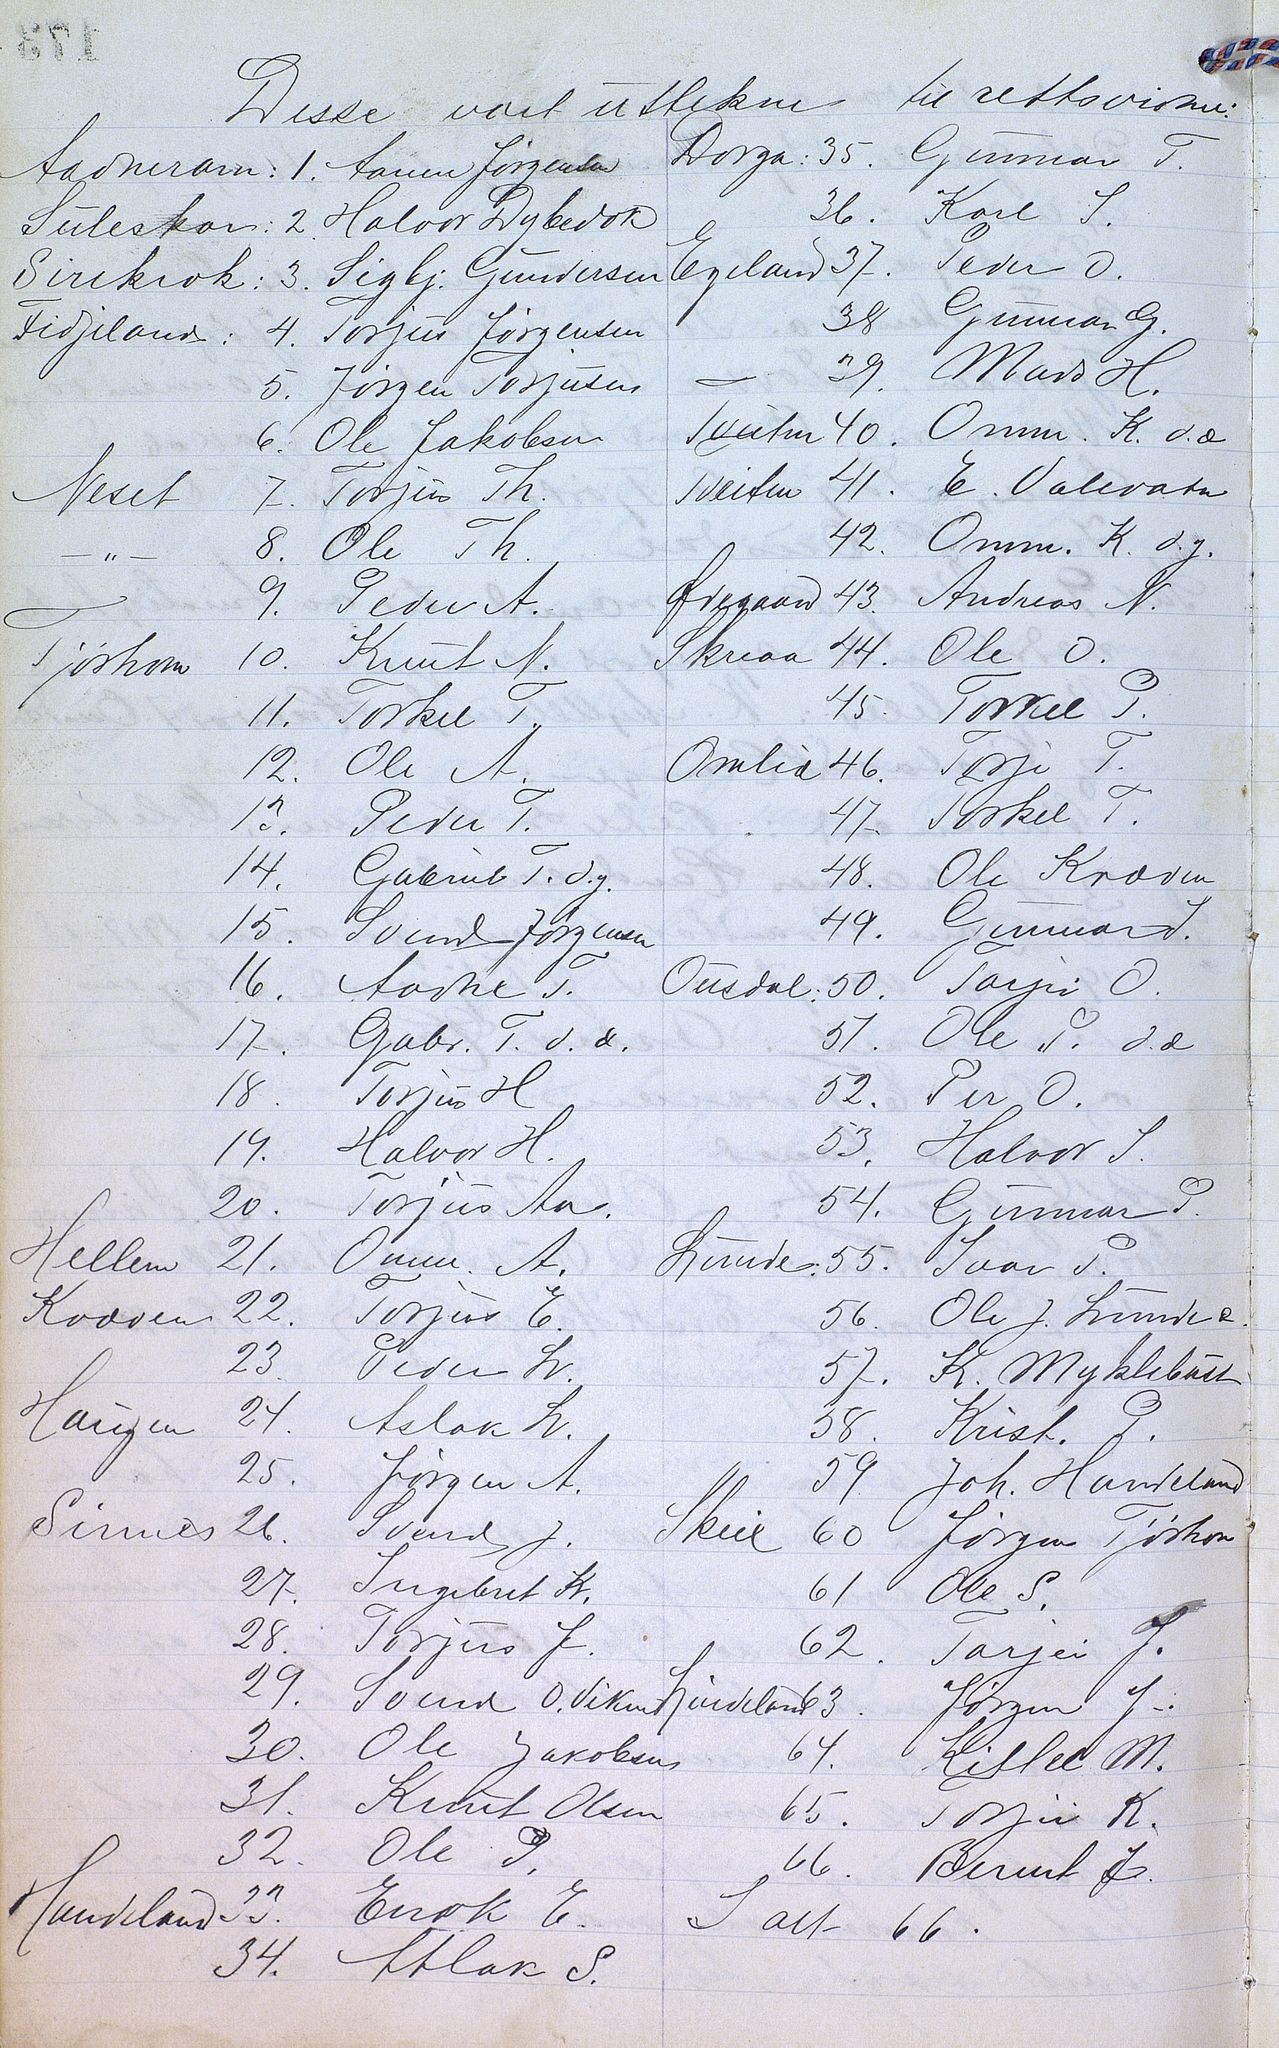 173
Disse vart uttekne til rettsvidne:
Aadneram: 1. Aanen Jørgensen
Suleskar: 2. Halvor Dybedok
Sirekrok: 3. Sigbj. Gundersen
Fidjeland: 4. Torjus Jørgensen
5. Jørgen Torjusen
6. Ole Jakobsen
Neset 7. Torjus Th.
—"— 8. Ole Th.
9. Peder A.
Tjørhom 10. Knut N.
11. Torkel T.
12. Ole A.
13. Peder T.
14. Gabriel T. d.y.
15. Svend Jørgensen
16. Aadne T.
17. Gabr. T. d. æ.
18. Torjus H
19. Halvor H.
20. Torjus Aa.
Hellem 21. Omm. A.
Kvæven 22. Torjus E.
23. Peder Kr.
Haugen 24. Aslak Kr.
25. Jørgen A.
Sinnes 26. Svend J.
27. Ingebret K.
28. Torjus J.
29. Svend O. Viken
30. Ole Jakobsen
31. Knut Olsen
32. Ole P.
Handeland 33. Enok E.
34. Atlak S.
Dorga: 35. Gunnar T.
36. Karl S.
Egeland 37. Peder O.
38 Gunnar G.
— 39. Mads H.
Tveiten 40. Omm. K. d.æ
Tveiten 41. E. Valevatn
42. Omm. K. d.y.
Øvregaard 43. Andreas N.
Skreaa 44. Ole O.
45. Torkel P.
Omlid 46. Torje T.
47. Torkel T.
48. Ole Kvæven
49. Gunnar S.
Ousdal: 50. Tarjei O.
51. Ole P. d.æ
52. Per O.
53. Halvor S.
54. Gunnar P.
Lunde: 55. Ivar P.
56. Ole J. Lunde
57. K. Myklebust
58. Krist. P.
59 Joh. Handeland
Skeie 60 Jørgen Tjørhom
61 Ole S.
62. Tarjei J.
Liandeland 63. Jørgen J.
64. Kittel M.
65. Torjei K.
66. Berent J.
I alt 66.